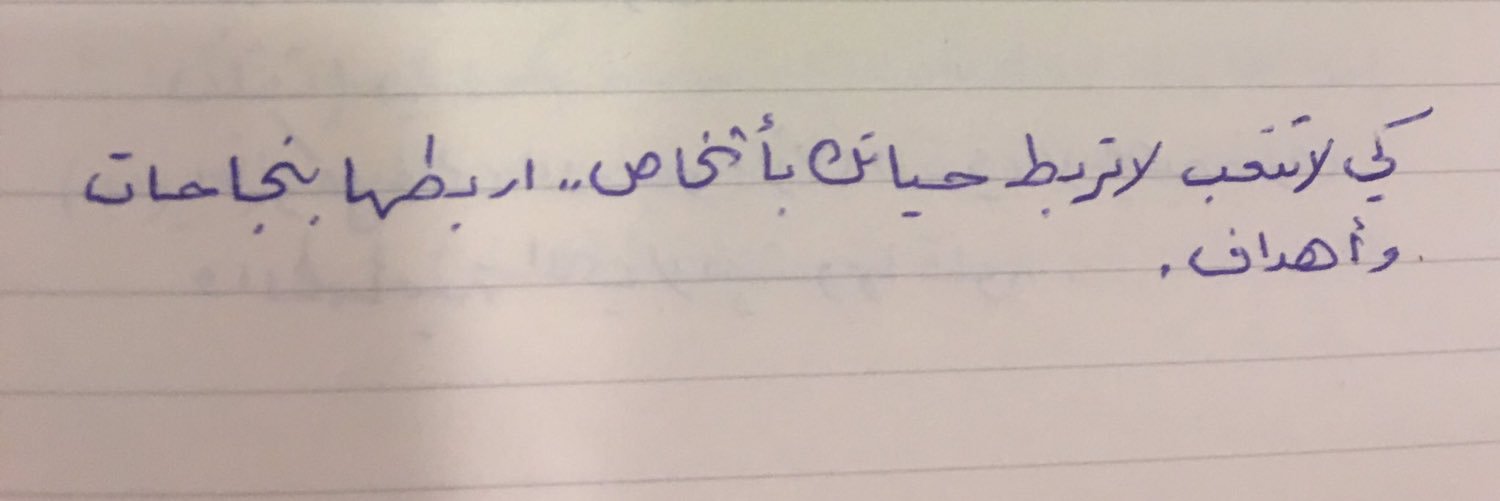 كي لا تتعب لا تربط حياتك بأشخاص.. اربطها بنجاحات
وأهداف.